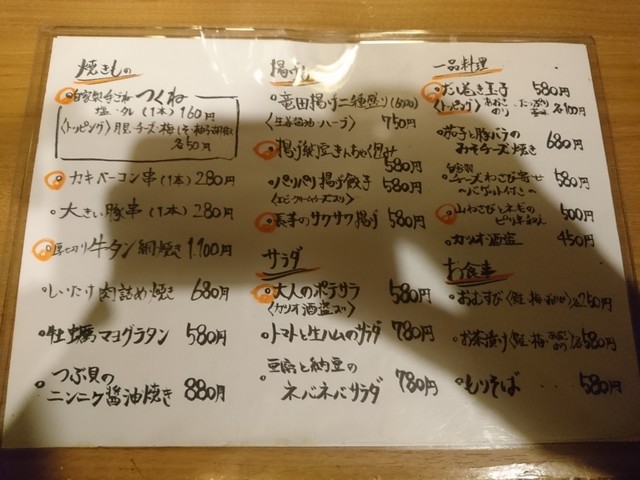 焼きもの
自家製手ごね つくね
塩・タレ (1本) 160円
〈トッピング〉 チーズ・梅しそ
各50円
カキベーコン串 (1本) 280円
大きい豚串 (1本) 280円
厚切り牛タン網焼き 1,100円
しいたけ肉詰め焼き 680円
牡蠣マヨグラタン 580円
つぶ貝の
ニンニク醤油焼き 880円
揚げもの
竜田揚げ二種盛り (6コ)
〈生姜醤油・ハーブ〉 750円
揚げ納豆きんちゃく包み
580円
パリパリ揚げ餃子 580円
長芋のサクサク揚げ 580円
サラダ
大人のポテサラ 580円
〈カツオ酒盗入り〉
トマトと生ハムのサラダ 780円
豆腐と納豆の
ネバネバサラダ 780円
一品料理
だしまき玉子 580円
〈トッピング〉 あおさのり 各100円
茄子と豚バラの
みそチーズ焼き 680円
自家製
チーズわさび寄せ 580円
バゲット付き
山わさびとネギの
500円
カツオ酒盗 450円
お食事
おむすび〈鮭・梅〉各250円
お茶漬け〈鮭・梅・あおさのり〉各580円
もりそば 580円